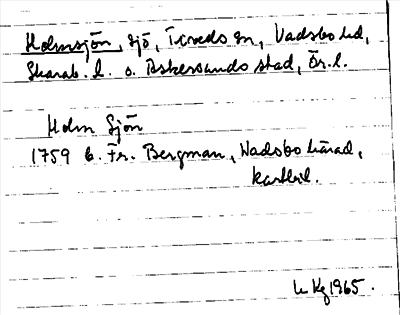 Holmsjön, sjö, Tiveds sn, Vadsbo hd,
Skarab. l. o. Askersunds stad, Ör. l.
Holm Sjön
1759 b. Fr. Bergman, Wadsbo härad,
kartbil.
1965.